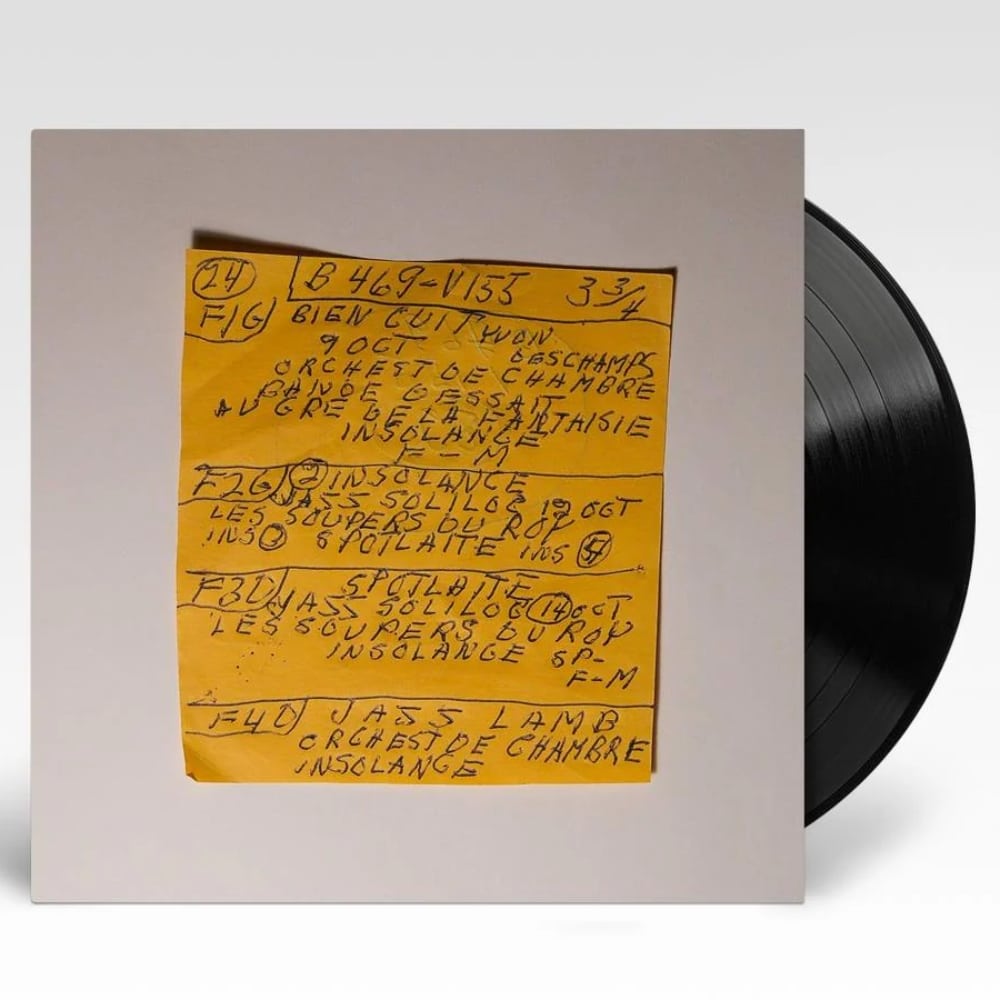 24 B 469-V155 3 3/4
F1G BIEN CUIT YVON
9 OCT DESCHAMPS
ORCHEST DE CHAMBRE
BANDE DESSAIT
AU GRE DE LA FANTAISIE
INSOLANGE
F-M
F2G 2 INSOLANCE
JASS SOLILOC 19 OCT
LES SOUPERS DU ROY
INS SPOTLAITE INS
F3D SPOTLAITE
JASS SOLILOC 14 OCT
LES SOUPERS DU ROY
INSOLANGE SP-
F-M
F4D JASS LAMB
ORCHEST DE CHAMBRE
INSOLANGE